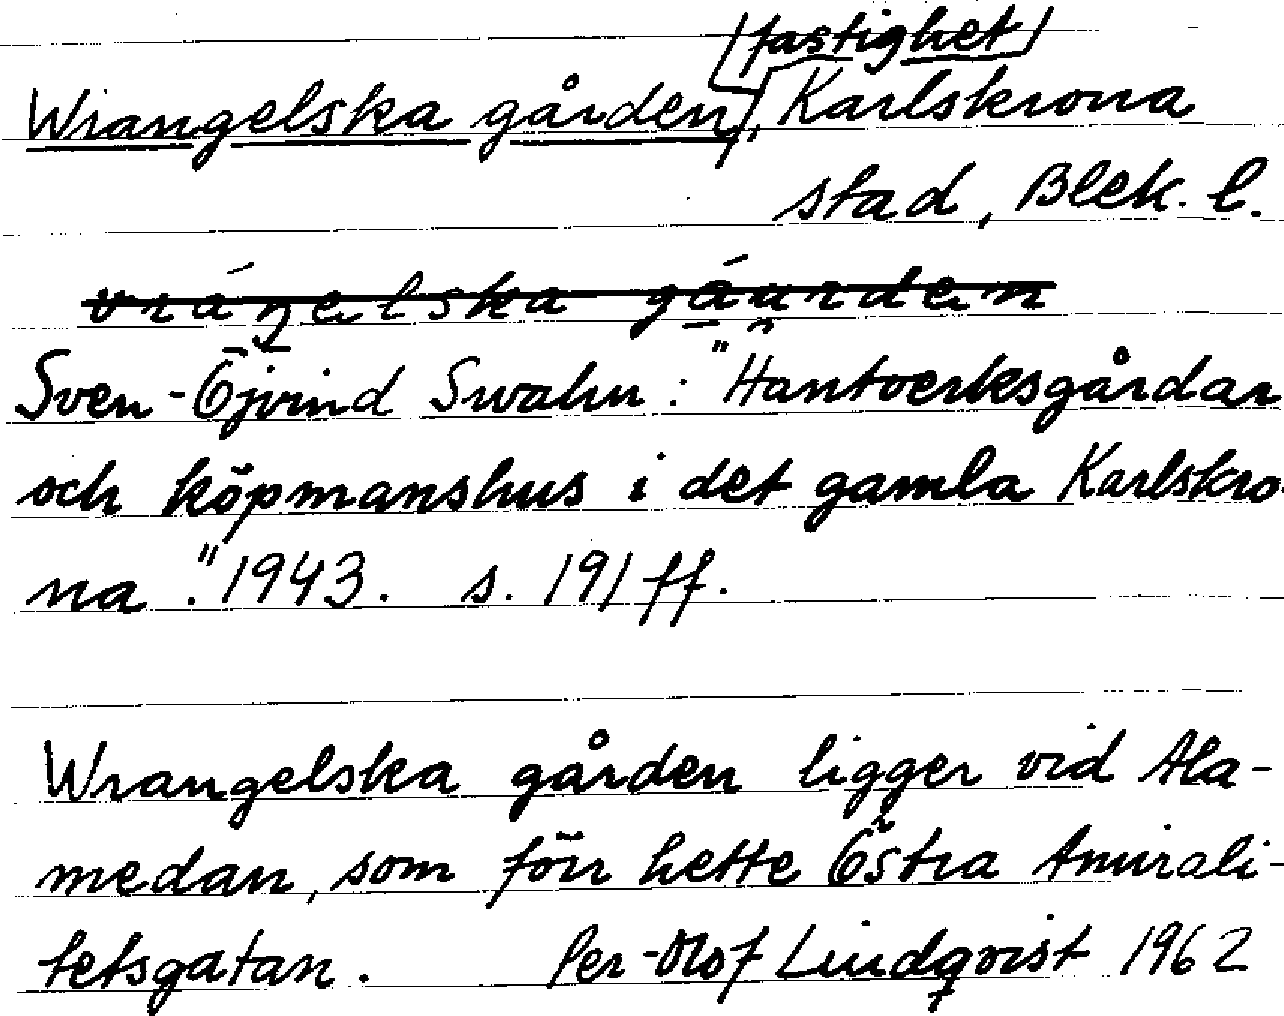 Wrangelska gården, (fastighet) Karlskrona
stad, Blek. l.
Sven-Öjvind Swahn: "Hantverksgårdar
och köpmanshus i det gamla Karlskro-
na." 1943. s. 191 ff.
Wrangelska gården ligger vid Ala-
medan, som förr hette Östra Amirali-
tetsgatan. Per-Olof Lindqvist 1962